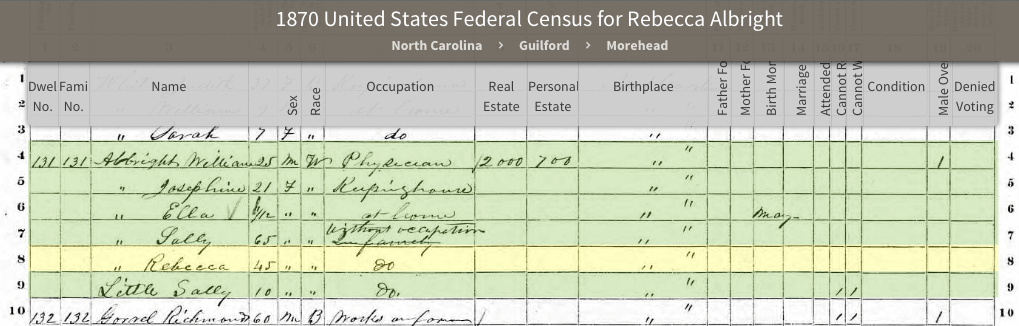 1870 United States Federal Census for Rebecca Albright
North Carolina > Guilford > Morehead
Dwel No. Fami No. Name Sex Race Occupation Real Estate Personal Estate Birthplace Father Fo Mother Fo Birth Mon Marriage Attended Cannot R Cannot W Condition Male Ove Denied Voting
1 1
2 2
3 " Sarah 7 F " do " " 3
4 131 131 Albright William 25 M W Physician 2000 700 " " 1 4
5 " Josephine 21 F " Keepinghouse " " 5
6 " Ella /12 " " at home " " May 6
7 " Sally 65 " " without occupation " " 7
8 " Rebecca 45 " " do " " 8
9 Little Sally 10 " " do. " " 1 1 9
10 132 132 Richmond 60 M B Works on farm " " 1 1 1 10